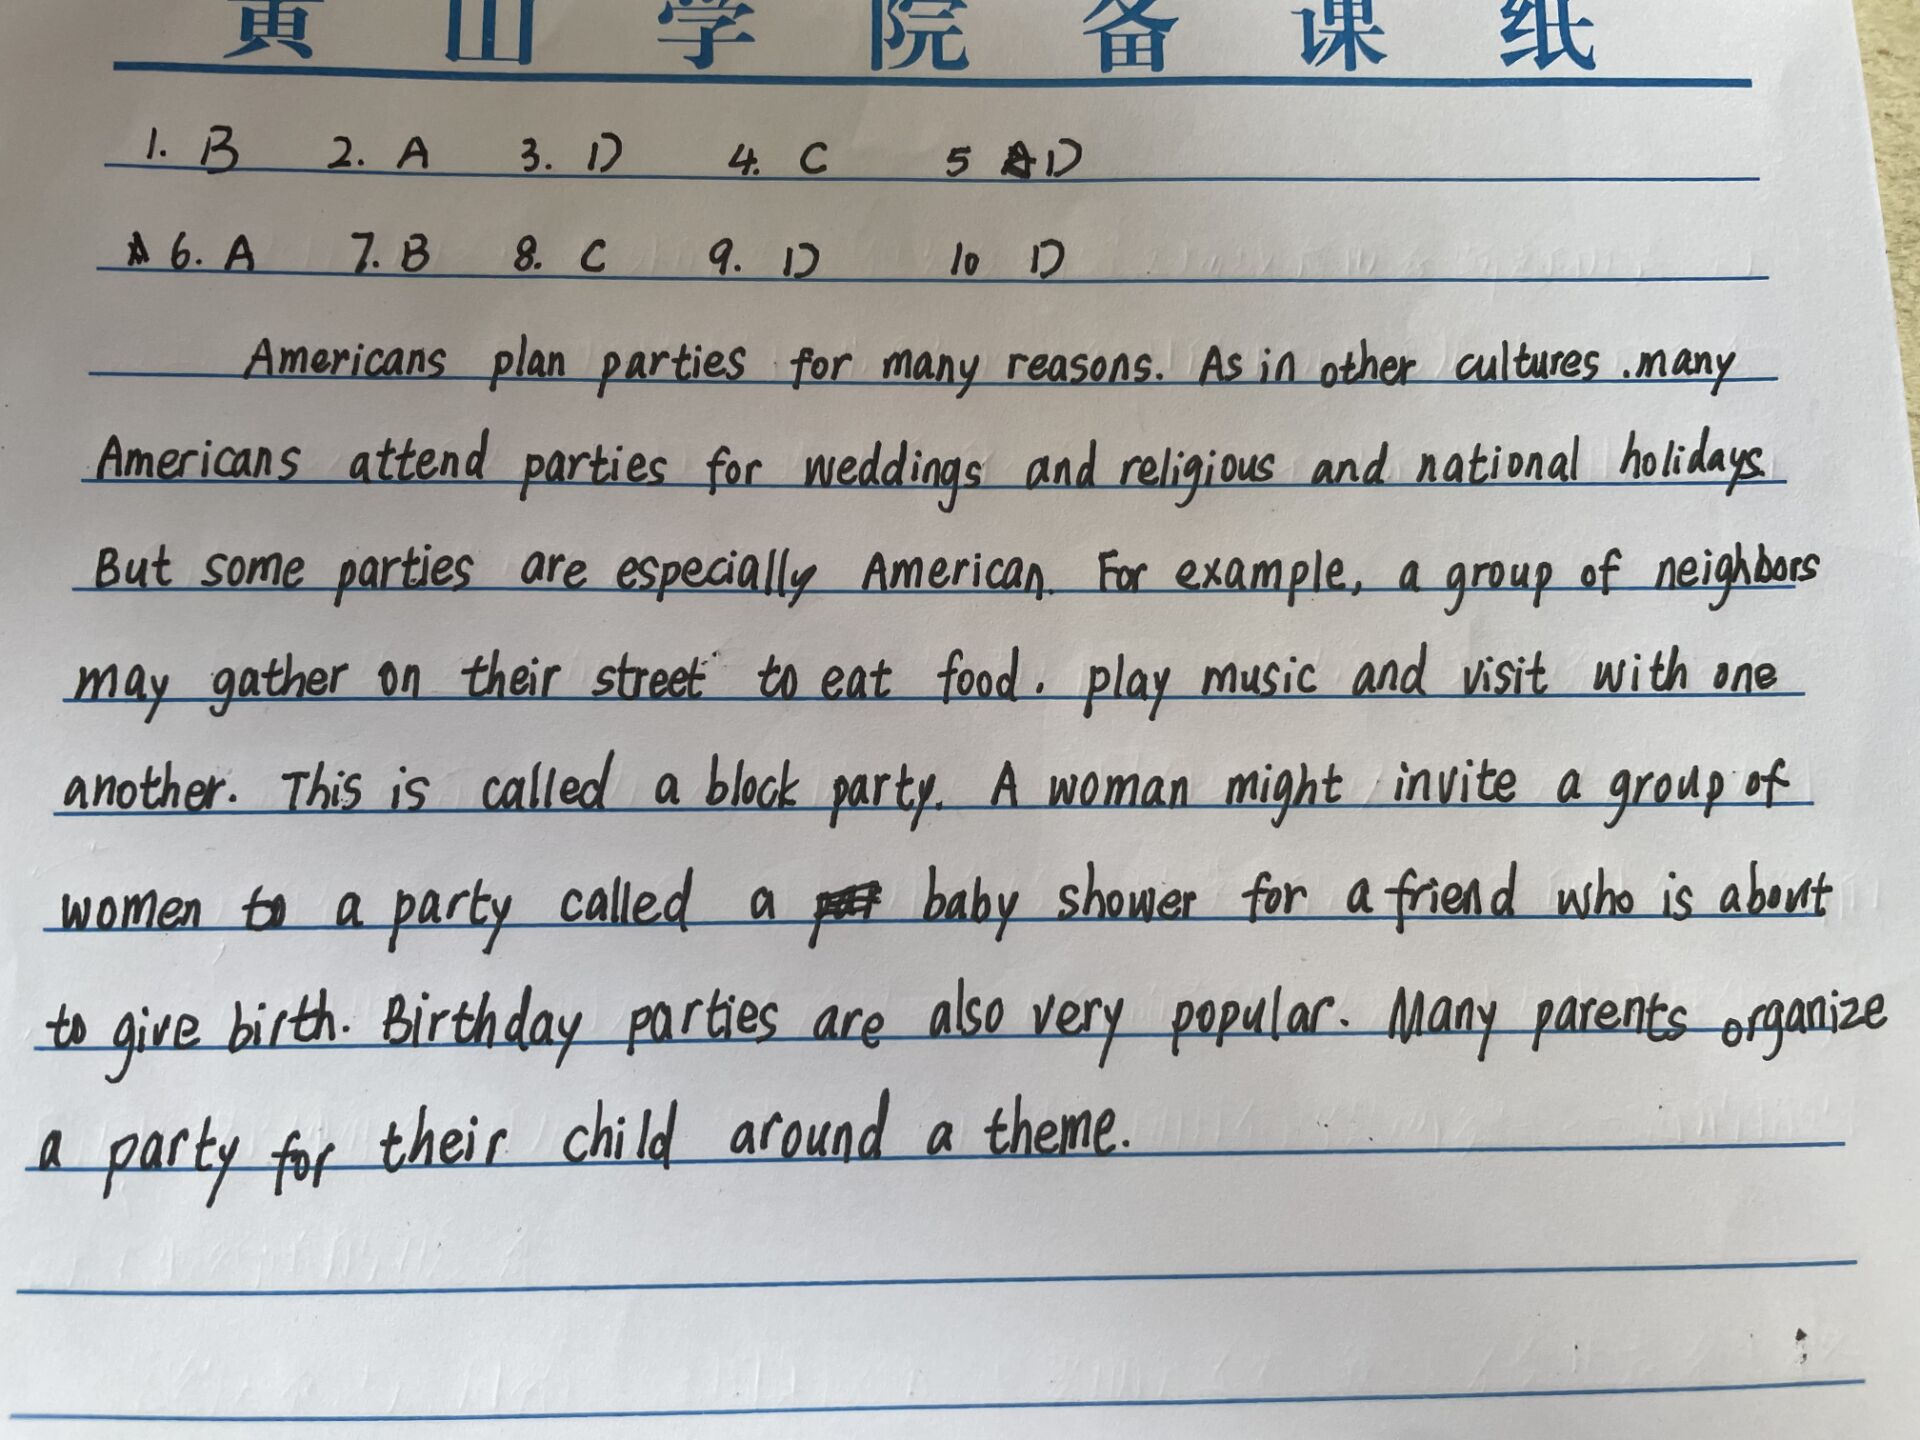 黄山学院备课纸
1. B 2. A 3. D 4. C 5 D
6. A 7. B 8. C 9. D 10 D
Americans plan parties for many reasons. As in other cultures .many
Americans attend parties for weddings and religious and national holidays.
But some parties are especially American. For example, a group of neighbors
may gather on their street to eat food. play music and visit with one
another. This is called a block party. A woman might invite a group of
women to a party called a baby shower for a friend who is about
to give birth. Birthday parties are also very popular. Many parents organize
a party for their child around a theme.